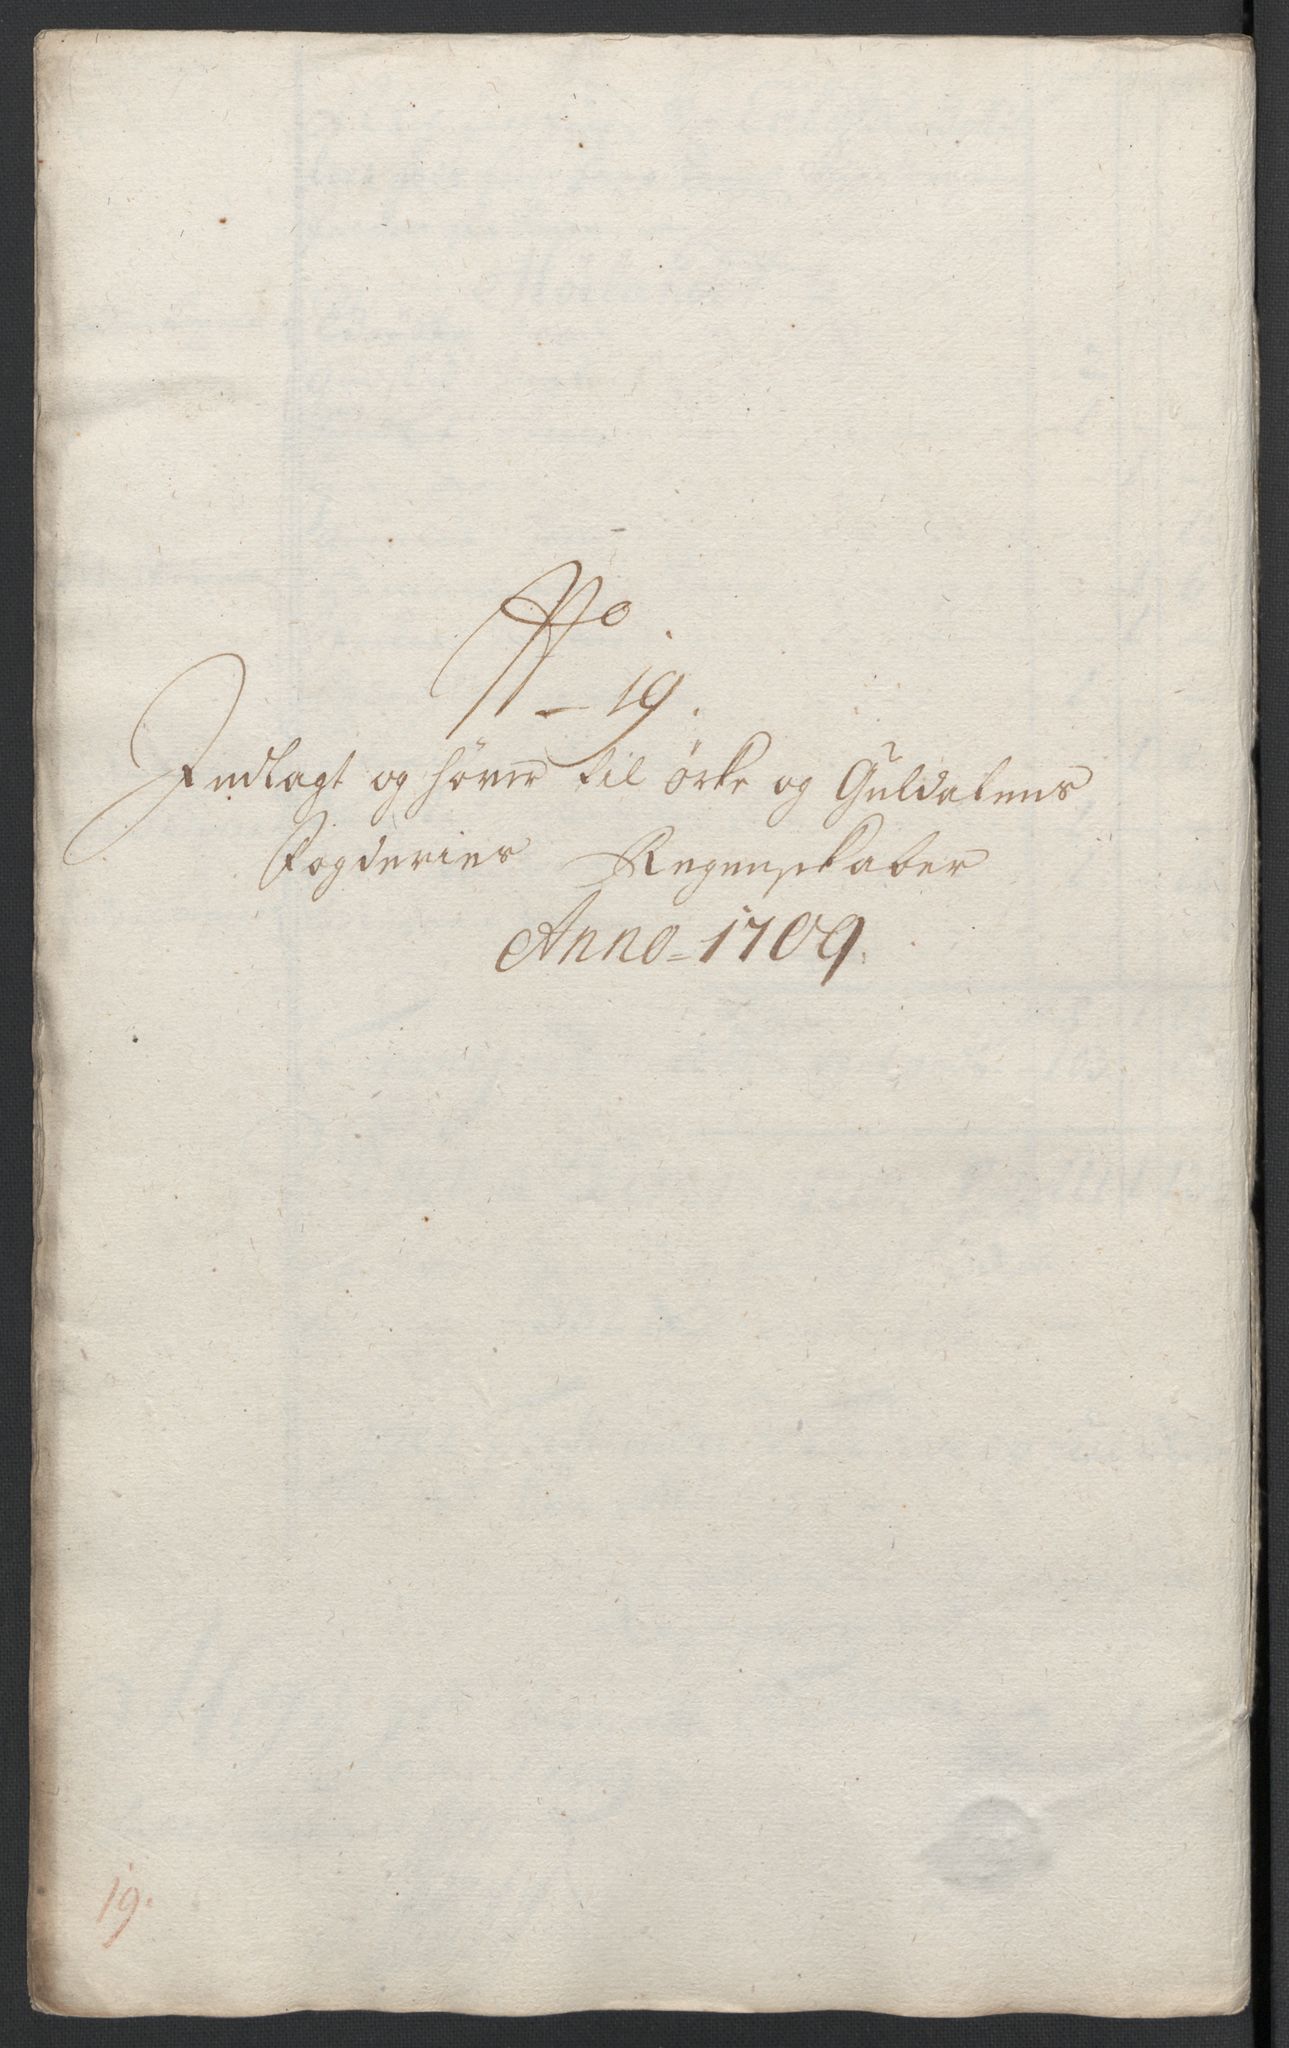 No
19.
Indlagt og hører til Örke og Guldalens
Fogderies Regenskaber
Anno = 1709.
19.